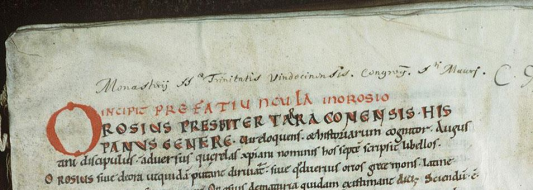 Monasterij SS.ae Trinitatis Vindocinensis. Congreg. S.ti Mauri. C.
INCIPIT PREFATIUNCULA IN OROSIO
OROSIUS PRESBITER TARRACONENSIS. HIS
PANUS GENERE. eloquens. & historiarum cognitor. Augus
tini discipulus. adversus querelas xpiani nominis hos septe scripsit libellos.
OROSIUS sive ut quidam putant sive orios grece mons. latine
quidam existimant dici. Sciendu. e.